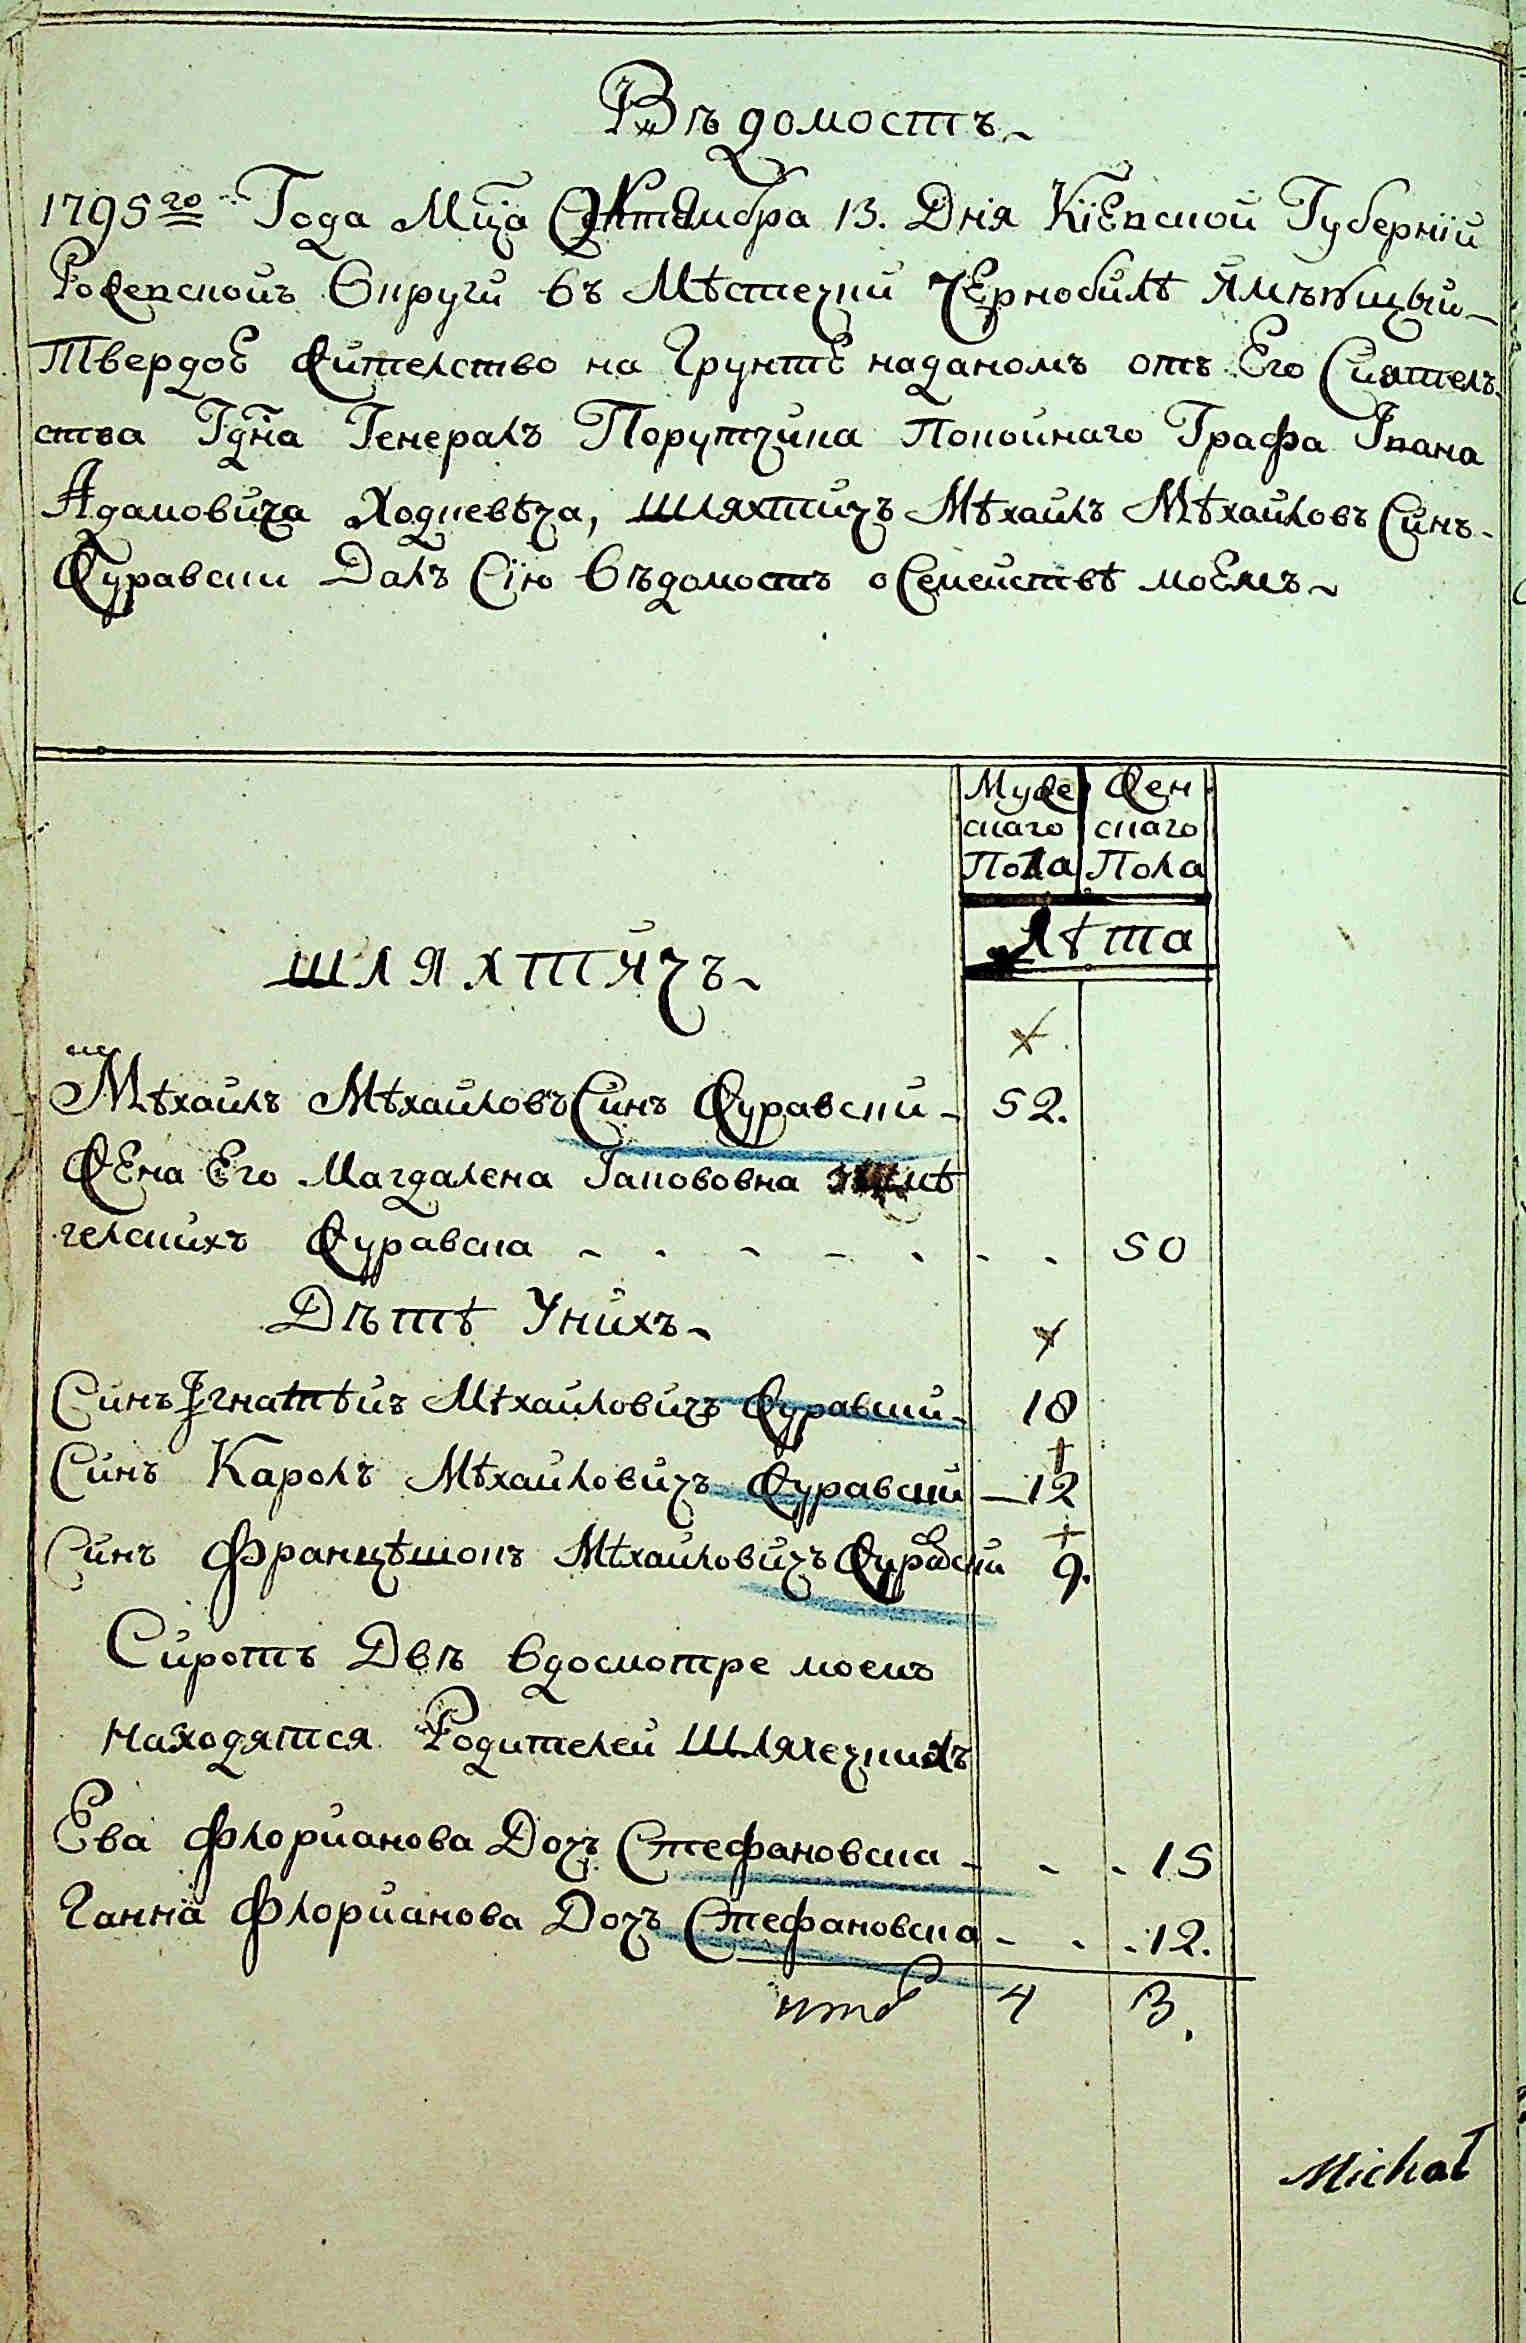 Вѣдомость
1795го Года Мц̃а Октямбра 13. Дня Кіевской Губерніи
Рожевской Округи въ Мѣстечки Чернобилѣ Ямѣющый
Твердое Жителство на Грунтѣ наданомъ отъ Его Сиятель
ства Гд̃на Генералъ Порутчика Покойнаго Графа Івана
Адамовича Ходкевѣча, шляхтичъ Мѣхаилъ Мѣхаиловъ Синъ
Журавски Далъ Сію Вѣдомость о Семействѣ моемъ
Муже Жен
скаго скаго
Пола Пола
Лѣта
шляхтичъ
Мѣхаилъ Мѣхаиловъ Синъ Журавски 52.
Жена Его Магдалена Іакововна
гелскихъ Журавска 50
Дѣтѣ Унихъ
Синъ Ігнатѣй Мѣхаиловичъ Журавский 18
Синъ Каролъ Мѣхаиловичъ Журавский 12
Синъ Францѣшокъ Мѣхаиловичъ Журавски 9.
Сиротъ Двѣ вдосмотре моемъ
находятся Родителей Шляхечкихъ
Ева Флорианова Дочъ Стефановска 15
Ганна Флорианова Дочъ Стефановска 12.
итого 4 3.
Michał